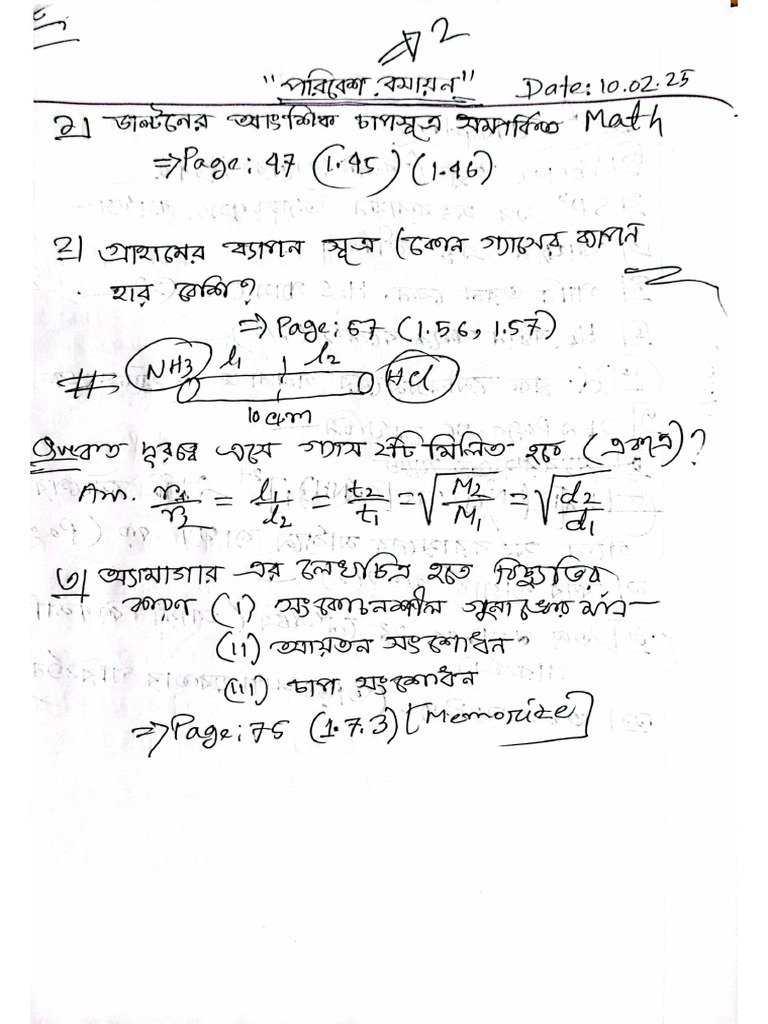 2
"পরিবেশ রসায়ন" Date: 10.02.25
১| ডাল্টনের আংশিক চাপসূত্র সম্পর্কিত Math
⇒ Page: 47 (1.45) (1.46)
২| গ্রাহামের ব্যাপন সূত্র (কোন গ্যাসের ব্যাপন
হার বেশি?
⇒ Page: 57 (1.56, 1.57)
# NH3 l1 l2 HCl
10 cm
কত দূরত্বে এসে গ্যাস ২টি মিলিত হবে (একত্রে)?
Ans. r1/r2 = l1/l2 = t2/t1 = √(M2/M1) = √(d2/d1)
৩| অ্যামাগার এর লেখচিত্র হতে বিচ্যুতির
কারণ (i) সংকোচনশীল গুণাঙ্কের মান
(ii) আয়তন সংশোধন
(iii) চাপ সংশোধন
⇒ Page: 75 (1.7.3) [Memorize]